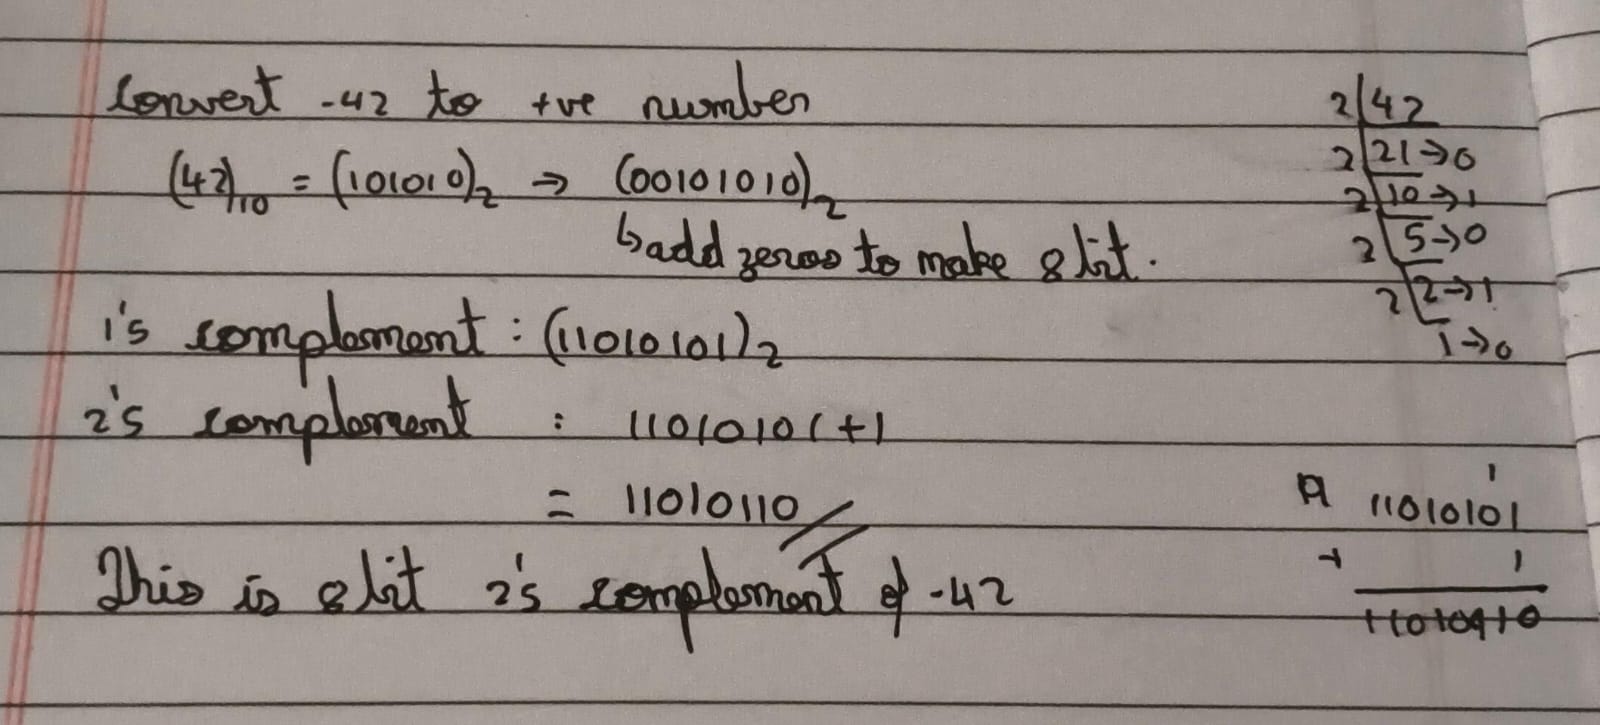 Convert -42 to +ve number
(42)10 = (101010)2 → (00101010)2
↳ add zeros to make 8 bit.
1's complement : (11010101)2
2's complement : 11010101+1
= 11010110
This is 8 bit 2's complement of -42
2 | 42
2 | 21 → 0
2 | 10 → 1
2 | 5 → 0
2 | 2 → 1
1 → 0
1
11010101
+ 1
11010110